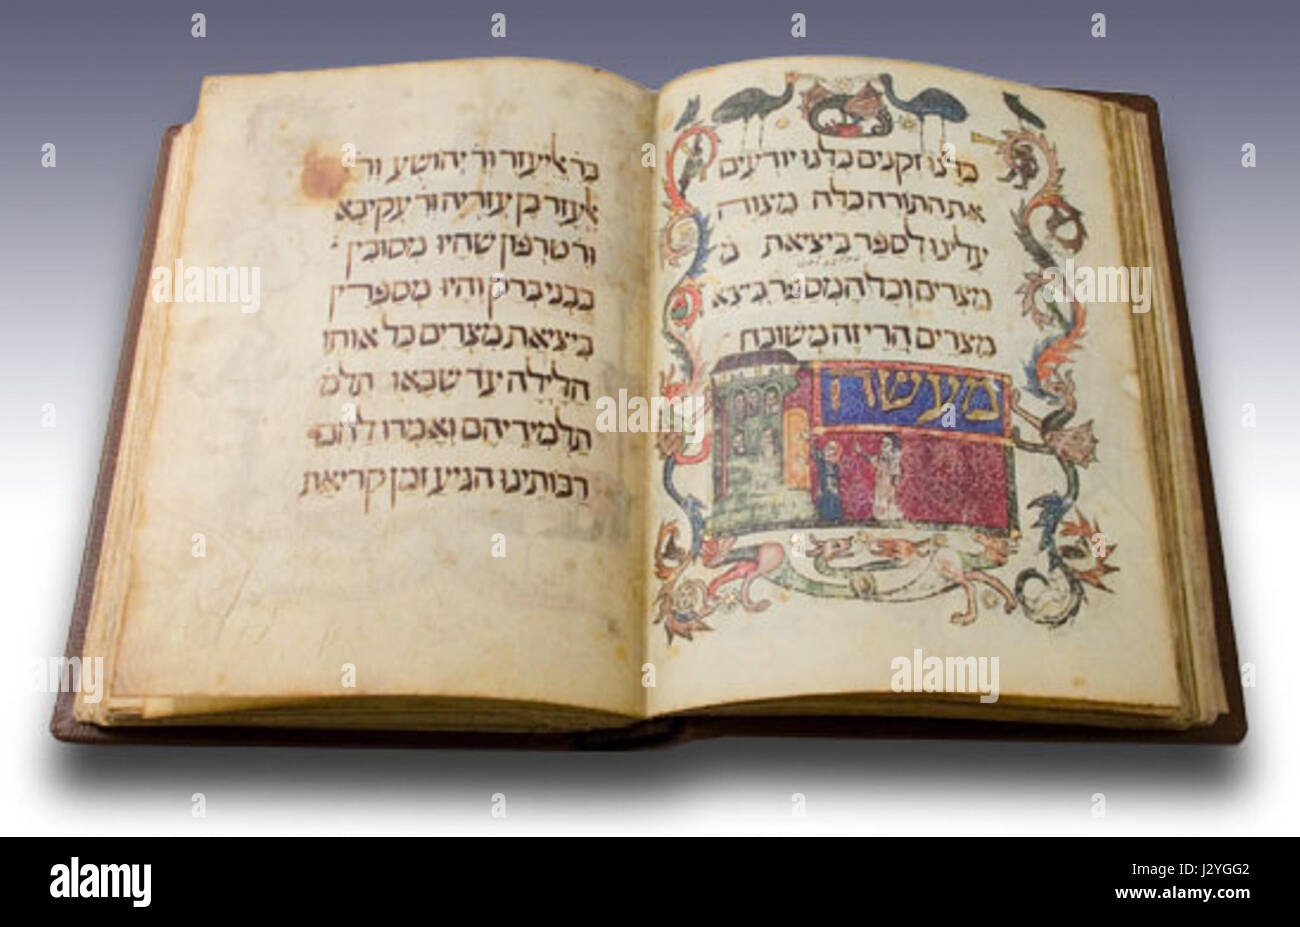 כלנו זקנים כלנו יודעים
את התורה כלה מצוה
עלינו לספר ביציאת מ
מצרים וכל המספר ביצא
מצרים הרי זה משובח
מעשה
בר אליעזר ור יהושע ור
אלעזר בן עזריה ור עקיבא
ור טרפון שהיו מסובין
בבני ברק והיו מספרין
ביציאת מצרים כל אותו
הלילה עד שבאו תלמ
תלמידיהם ואמרו להם
רבותינו הגיע זמן קריאת
alamy stock photo
J2YGG2
www.alamy.com